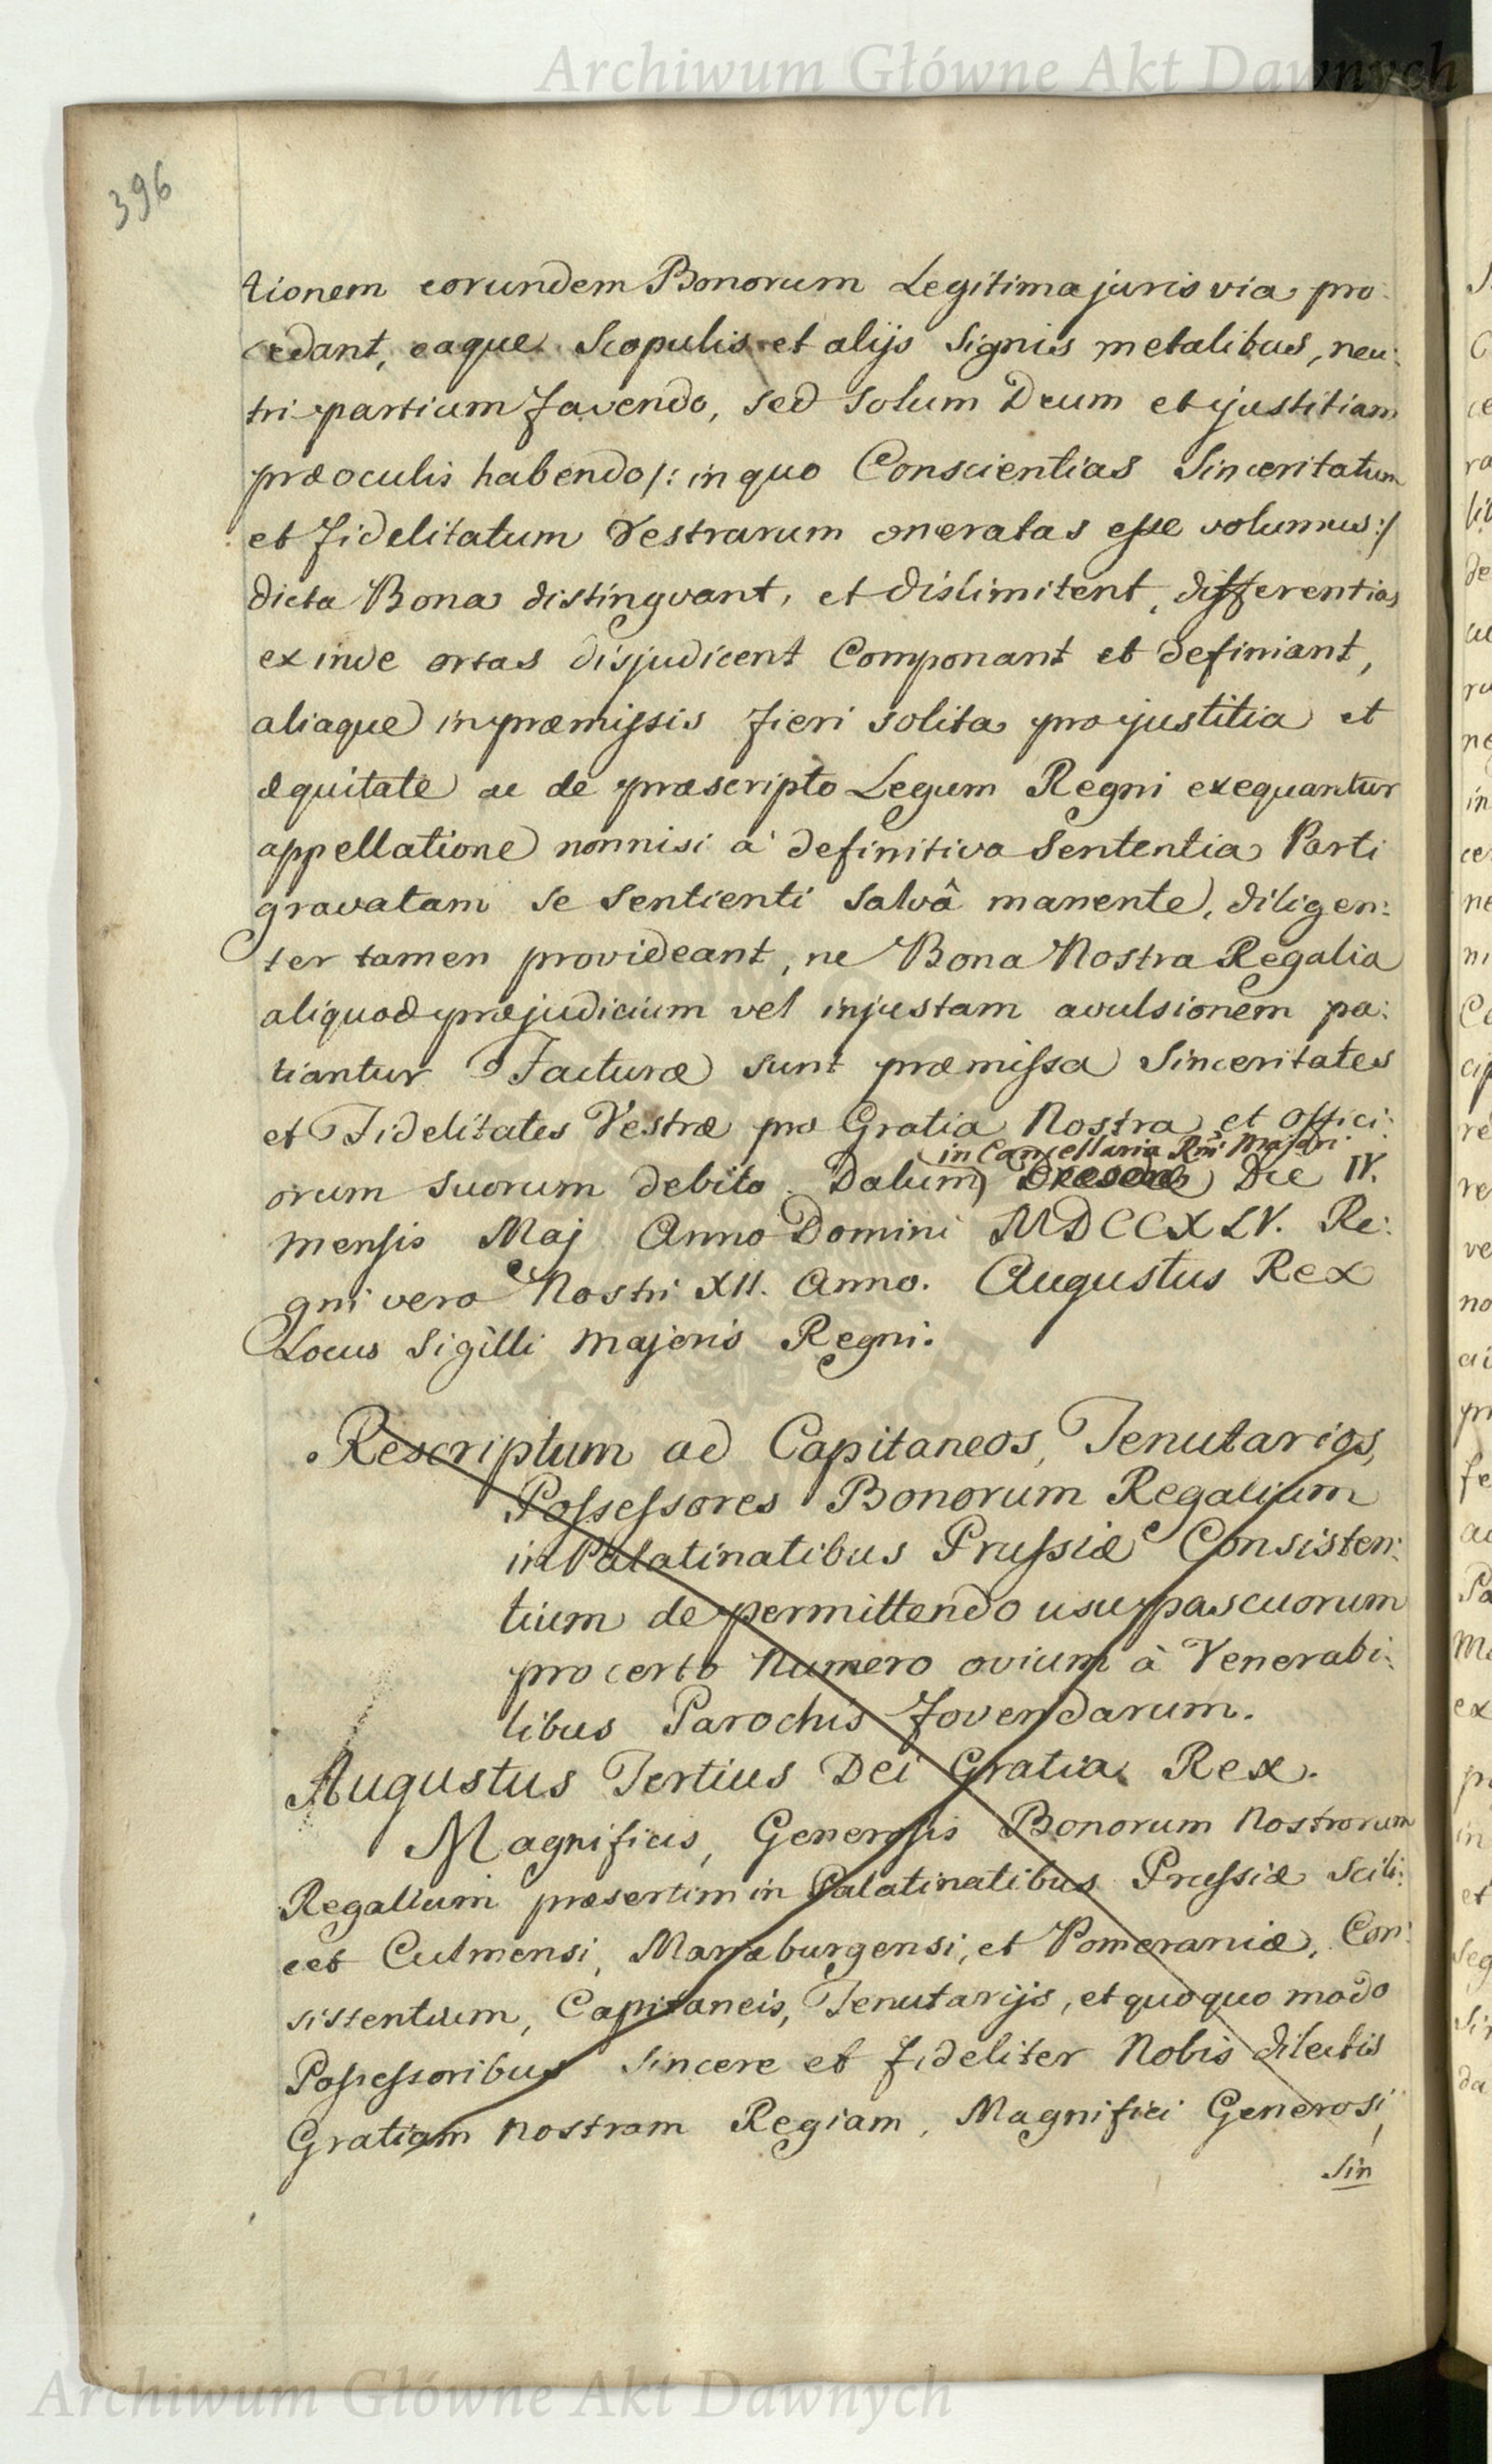 Archiwum Główne Akt Dawnych
396
tionem eorundem Bonorum Legitima juris via pro:
cedant, eaque Scopulis et alijs Signis metalibus, neu:
tri partium favendo, sed solum Deum et justitiam
præ oculis habendo /: in quo Conscientias Sinceritatum
et fidelitatum Vestrarum oneratas esse volumus :/
dicta Bona distingvant, et dislimitent, differentias
ex inde ortas disjudicent Componant et definiant,
aliaque in præmissis fieri solita pro justitia et
æquitate ac de præscripto Legum Regni exequantur
appellatione nonnisi à definitiva Sententia Parti
gravatam se Sentienti salvâ manente, diligen:
ter tamen provideant, ne Bona Nostra Regalia
aliquod præjudicium vel injustam avulsionem pa:
tiantur Facturæ sunt præmissa Sinceritates
et Fidelitates Vestræ pro Gratia Nostra et offici:
in Cancellaria Rni Majori
orum suorum debito. Datum Dresdæ Die IV.
mensis Maj Anno Domini MDCCXLV. Re:
gni vero Nostri XII. Anno. Augustus Rex
Locus Sigilli Majoris Regni.
Rescriptum ad Capitaneos, Tenutarios,
Possessores Bonorum Regalium
in Palatinatibus Prussiæ Consisten:
tium de permittendo usu pascuorum
pro certo Numero ovium à Venerabi:
libus Parochis fovendarum.
Augustus Tertius Dei Gratia Rex.
Magnificis, Generosis Bonorum Nostrorum
Regalium præsertim in Palatinatibus Prussiæ Scili:
cet Culmensi, Mariæburgensi, et Pomeraniæ, Con:
sistentium, Capitaneis, Tenutarijs, et quoquo modo
Possessoribus Sincere et fideliter Nobis dilectis
Gratiam Nostram Regiam, Magnifici Generosi,
Sin
Archiwum Główne Akt Dawnych